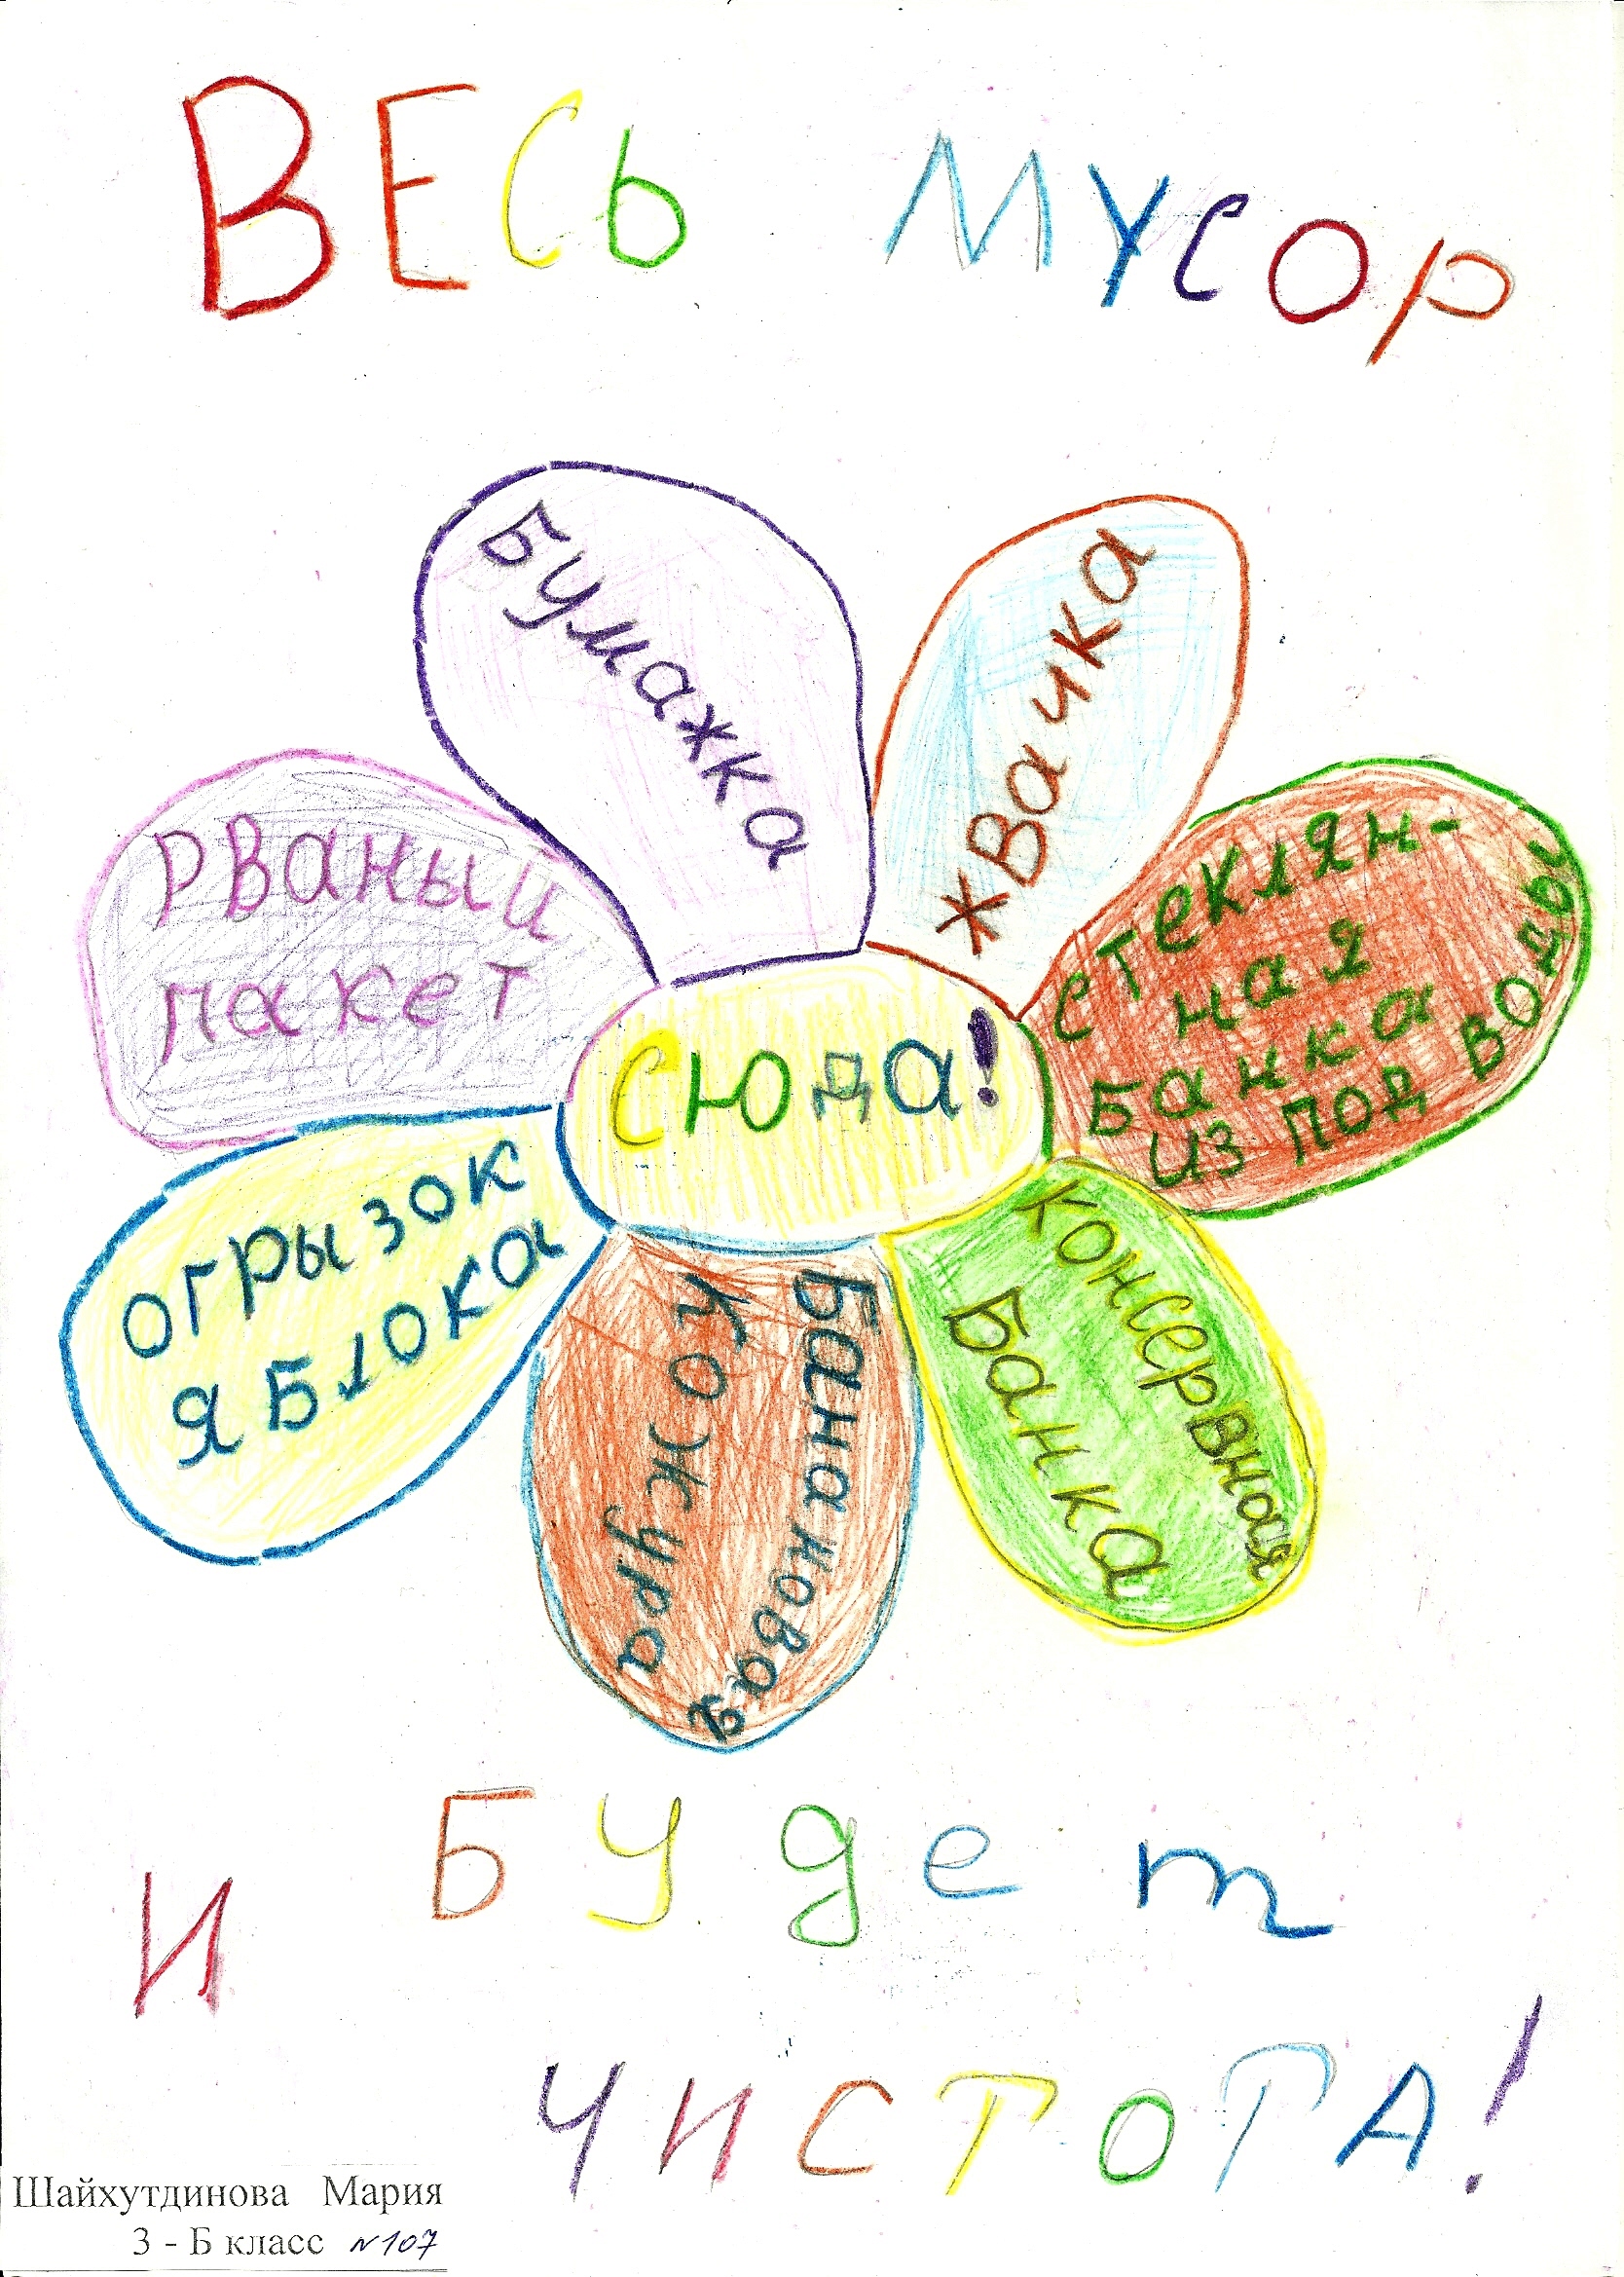 ВЕСЬ МУСОР
Бумажка
жвачка
Рваный
пакет
стеклян-
ная
Банка
из под воды
Сюда!
огрызок
яБлока
Банановая
кожура
консервная
Банка
И Будет
ЧИСТОТА!
Шайхутдинова Мария
3 - Б класс №107